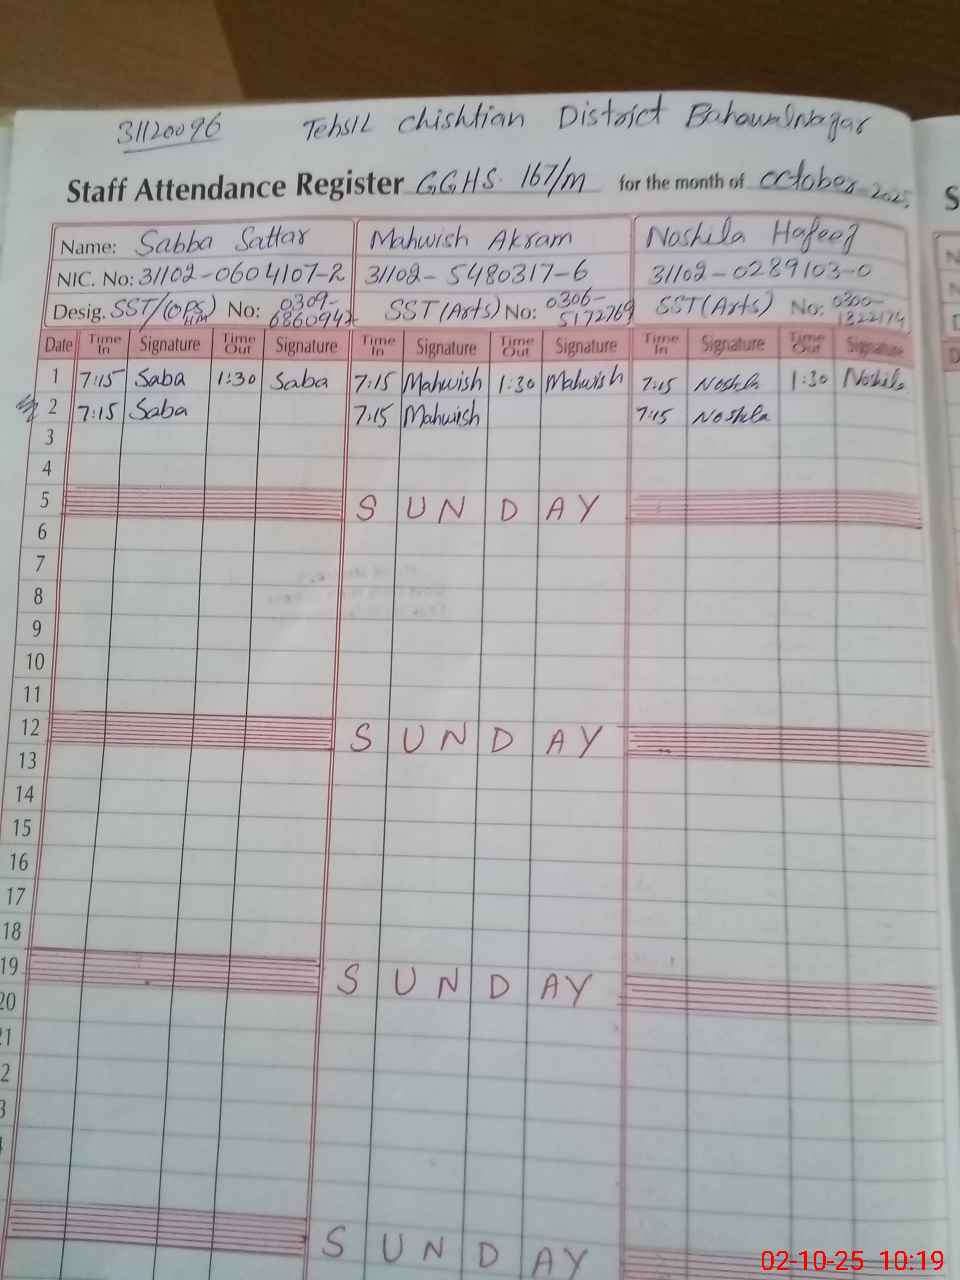 31120096 Tehsil Chishtian District Bahawalnagar
Staff Attendance Register GGHS 167/M for the month of October 2025
Name: Sabba Sattar Mahwish Akram Noshila Hafeez
NIC. No: 31102-0604107-2 31102-5480317-6 31102-0289103-0
Desig. SST/(OPS HM) No: 0309-6860942 SST(Arts) No: 0306-5172769 SST(Arts) No: 0300-1322174
Date Time In Signature Time Out Signature Time In Signature Time Out Signature Time In Signature Time Out Signature
1 7:15 Saba 1:30 Saba 7:15 Mahwish 1:30 Mahwish 7:15 Noshila 1:30 Noshila
2 7:15 Saba 7:15 Mahwish 7:15 Noshila
3
4
5 SUNDAY
6
7
8
9
10
11
12 SUNDAY
13
14
15
16
17
18
19 SUNDAY
20
21
2
3
SUNDAY
02-10-25 10:19